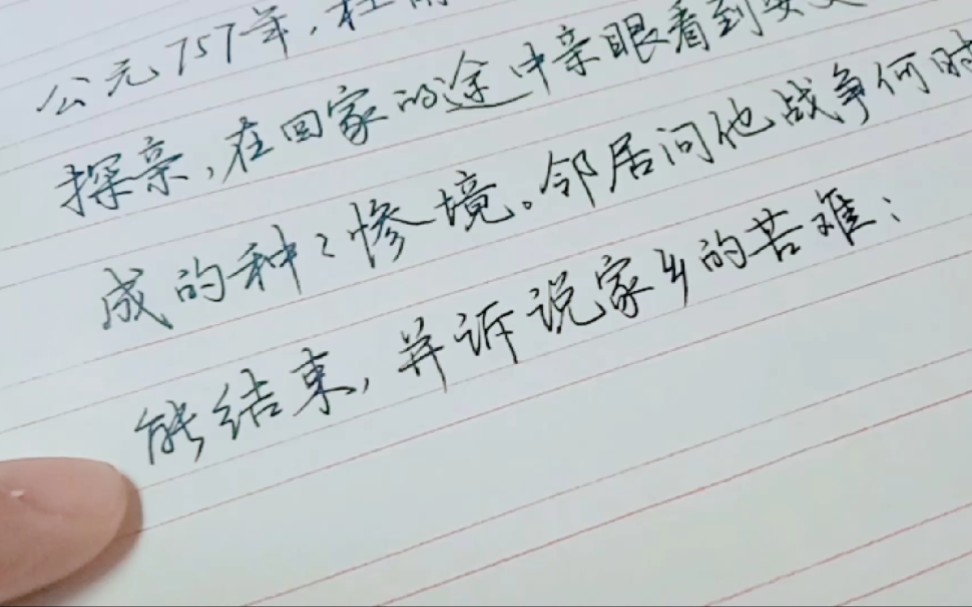 公元757年,杜甫
探亲,在回家的途中亲眼看到安史
成的种々惨境。邻居问他战争何时
能结束,并诉说家乡的苦难: